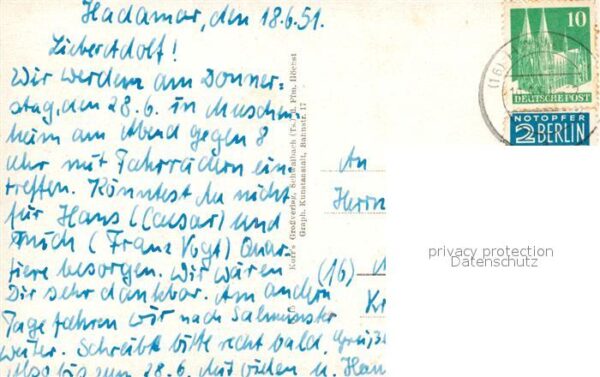 Hadamar, den 18.6.51.
Lieber Adolf!
Wir werden am Donner-
stag, den 28.6. in
heim am Abend gegen 8
Uhr mit Fahrrädern ein-
treffen. Könntest du nicht
für Hans (Caesar) und
mich (Franz Vogt) Quar-
tiere besorgen. Wir wären
Dir sehr dankbar. Am andern
Tage fahren wir nach Salmünster
weiter. Schreibt bitte recht bald.
Also bis zum 28.6. Mit vielen u.
Graph. Kunstanstalt, Bahnstr. 17
An
Herrn
(16)
Kr
10
DEUTSCHE POST
NOTOPFER
2 BERLIN
(16)
privacy protection
Datenschutz